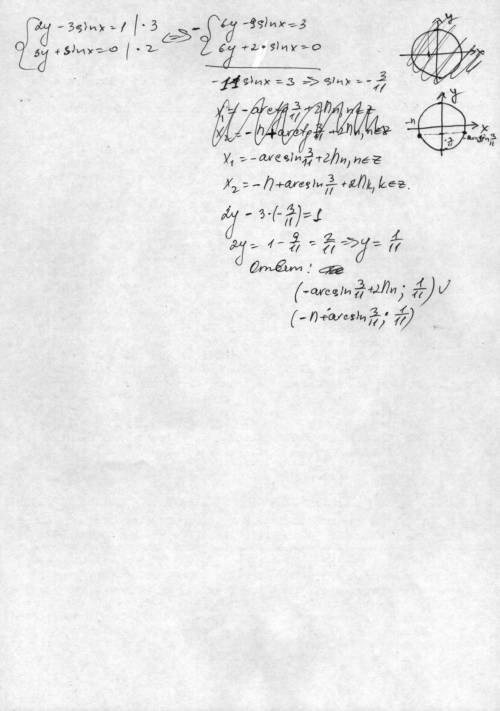 {2y - 3sinx = 1 | · 3 <=> - {6y - 9sinx = 3
{3y + sinx = 0 | · 2 {6y + 2·sinx = 0
-11sinx = 3 => sinx = -3/11
x₁ = -arcsin 3/11 + 2πn, n∈z
x₂ = -π + arcsin 3/11 + 2πk, k∈z.
2y - 3·(-3/11) = 1
2y = 1 - 9/11 = 2/11 => y = 1/11
Ответ:
(-arcsin 3/11 + 2πn; 1/11) ∪
(-π + arcsin 3/11; 1/11)
y
x
y
-π
x
-arcsin 3/11